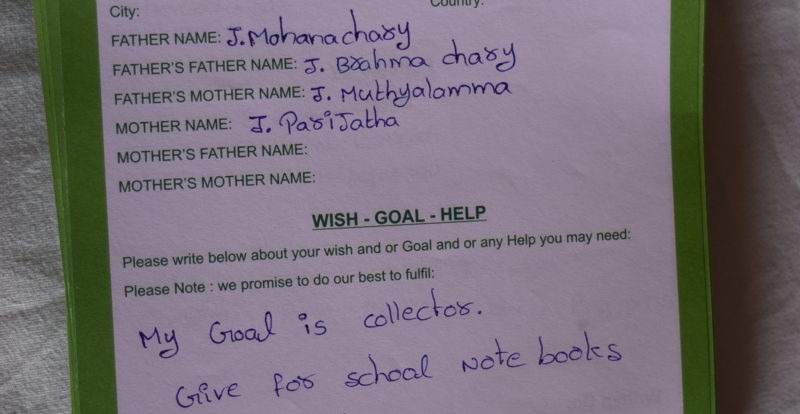 City:
Country:
FATHER NAME: J. Mohanachary
FATHER'S FATHER NAME: J. Brahma chary
FATHER'S MOTHER NAME: J. Muthyalamma
MOTHER NAME: J. PariJatha
MOTHER'S FATHER NAME:
MOTHER'S MOTHER NAME:
WISH - GOAL - HELP
Please write below about your wish and or Goal and or any Help you may need:
Please Note : we promise to do our best to fulfil:
My Goal is collector.
Give for school Note books